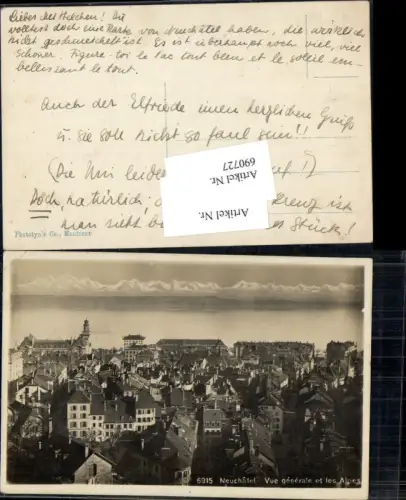 Lieber Methelchen! Du
wolltest doch eine Karte von Neuchâtel haben, die wirklich
nicht geschmeichelt ist. Es ist überhaupt noch viel, viel
schöner. Figure-toi le lac tout bleu et le soleil em-
bellissant le tout.
Auch der Elfriede einen herzlichen Gruß
u. sie soll nicht so faul sein!!
(Die Uni leider !)
Doch, natürlich; ist
man sieht Stück!
Artikel Nr.
690727
Artikel Nr.
Phototyp'e Co., Neuchâtel
6915 Neuchâtel Vue générale et les Alpes